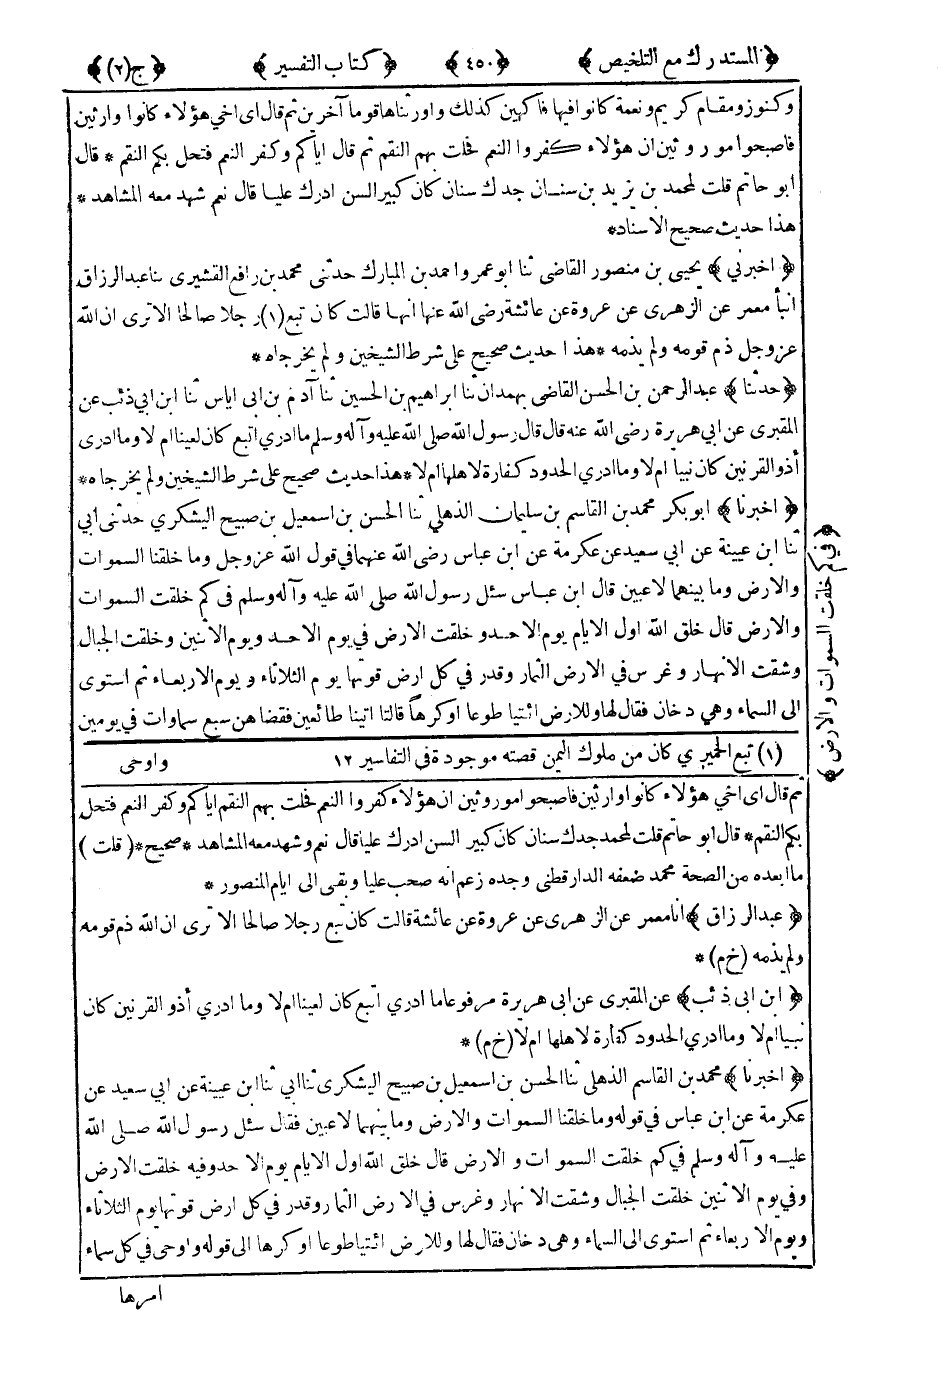 ﴿المستدرك مع التلخيص﴾ ﴿٤٥٠﴾ ﴿كتاب التفسير﴾ ﴿ج(٢)﴾
وكنوز ومقام كريم ونعمة كانوا فيها فاكهين كذلك واورثناها قوما آخرين ثم قال اى اخي هؤلاء كانوا وارثين
فاصبحوا موروثين ان هؤلاء كفروا النعم فحلت بهم النقم ثم قال اياكم وكفر النعم فتحل بكم النقم * قال
ابو حاتم قلت لمحمد بن يزيد بن سنان جدك سنان كان كبير السن ادرك عليا قال نعم شهد معه المشاهد *
هذا حديث صحيح الاسناد*
﴿اخبرني﴾ يحيى بن منصور القاضى ثنا ابو عمرو احمد بن المبارك حدثنى محمد بن رافع القشيرى ثنا عبد الرزاق
انبأ معمر عن الزهرى عن عروة عن عائشة رضى الله عنها انها قالت كان تبع(١)رجلا صالحا الا ترى ان الله
عز وجل ذم قومه ولم يذمه *هذا حديث صحيح على شرط الشيخين ولم يخرجاه *
﴿حدثنا﴾ عبد الرحمن بن الحسن القاضى بهمدان ثنا ابراهيم بن الحسين ثنا آدم بن ابى اياس ثنا ابن ابي ذئب عن
المقبرى عن ابي هريرة رضى الله عنه قال قال رسول الله صلى الله عليه وآله وسلم ما ادري اتبع كان لعينا ام لا وما ادرى
أذو القرنين كان نبيا ام لا وما ادري الحدود كفارة لاهلها ام لا*هذا حديث صحيح على شرط الشيخين ولم يخرجاه*
﴿اخبرنا﴾ ابو بكر محمد بن القاسم بن سليمان الذهلي ثنا الحسن بن اسمعيل بن صبيح اليشكري حدثنى أبي
ثنا ابن عيينة عن ابي سعيد عن عكرمة عن ابن عباس رضى الله عنهما في قول الله عز وجل وما خلقنا السموات
والارض وما بينهما لاعبين قال ابن عباس سئل رسول الله صلى الله عليه وآله وسلم فى كم خلقت السموات
والارض قال خلق الله اول الايام يوم الاحد وخلقت الارض في يوم الاحد ويوم الاثنين وخلقت الجبال
وشقت الانهار وغرس في الارض الثمار وقدر في كل ارض قوتها يوم الثلاثاء ويوم الاربعاء ثم استوى
الى السماء وهي دخان فقال لها وللارض ائتيا طوعا او كرهاً قالتا اتينا طائعين فقضاهن سبع سماوات في يومين
﴿في كم خلقت السموات والارض﴾
(١) تبع الحميري كان من ملوك اليمن قصته موجودة في التفاسير ١٢ واوحى
ثم قال اى اخي هؤلاء كانوا وارثين فاصبحوا موروثين ان هؤلاء كفروا النعم فحلت بهم النقم اياكم وكفر النعم فتحل
بكم النقم* قال ابو حاتم قلت لمحمد جدك سنان كان كبير السن ادرك عليا قال نعم وشهد معه المشاهد *صحيح*(قلت)
ما ابعده من الصحة محمد ضعفه الدارقطنى وجده زعم انه صحب عليا وبقى الى ايام المنصور *
﴿عبد الرزاق﴾ انا معمر عن الزهرى عن عروة عن عائشة قالت كان تبع رجلا صالحا الا ترى ان الله ذم قومه
ولم يذمه (خ م) *
﴿ابن ابى ذئب﴾ عن المقبرى عن ابى هريرة مرفوعا ما ادري اتبع كان لعينا ام لا وما ادري أذو القرنين كان
نبيا ام لا وما ادري الحدود كفارة لاهلها ام لا(خ م) *
﴿اخبرنا﴾ محمد بن القاسم الذهلى ثنا الحسن بن اسمعيل بن صبيح اليشكرى ثنا ابي ثنا ابن عيينة عن ابي سعيد عن
عكرمة عن ابن عباس في قوله وما خلقنا السموات والارض وما بينهما لاعبين فقال سئل رسول الله صلى الله
عليه وآله وسلم في كم خلقت السموات والارض قال خلق الله اول الايام يوم الاحد وفيه خلقت الارض
وفي يوم الاثنين خلقت الجبال وشقت الانهار وغرس في الارض الثمار وقدر في كل ارض قوتها يوم الثلاثاء
ويوم الاربعاء ثم استوى الى السماء وهى دخان فقال لها وللارض ائتيا طوعا او كرها الى قوله واوحى في كل سماء
امرها